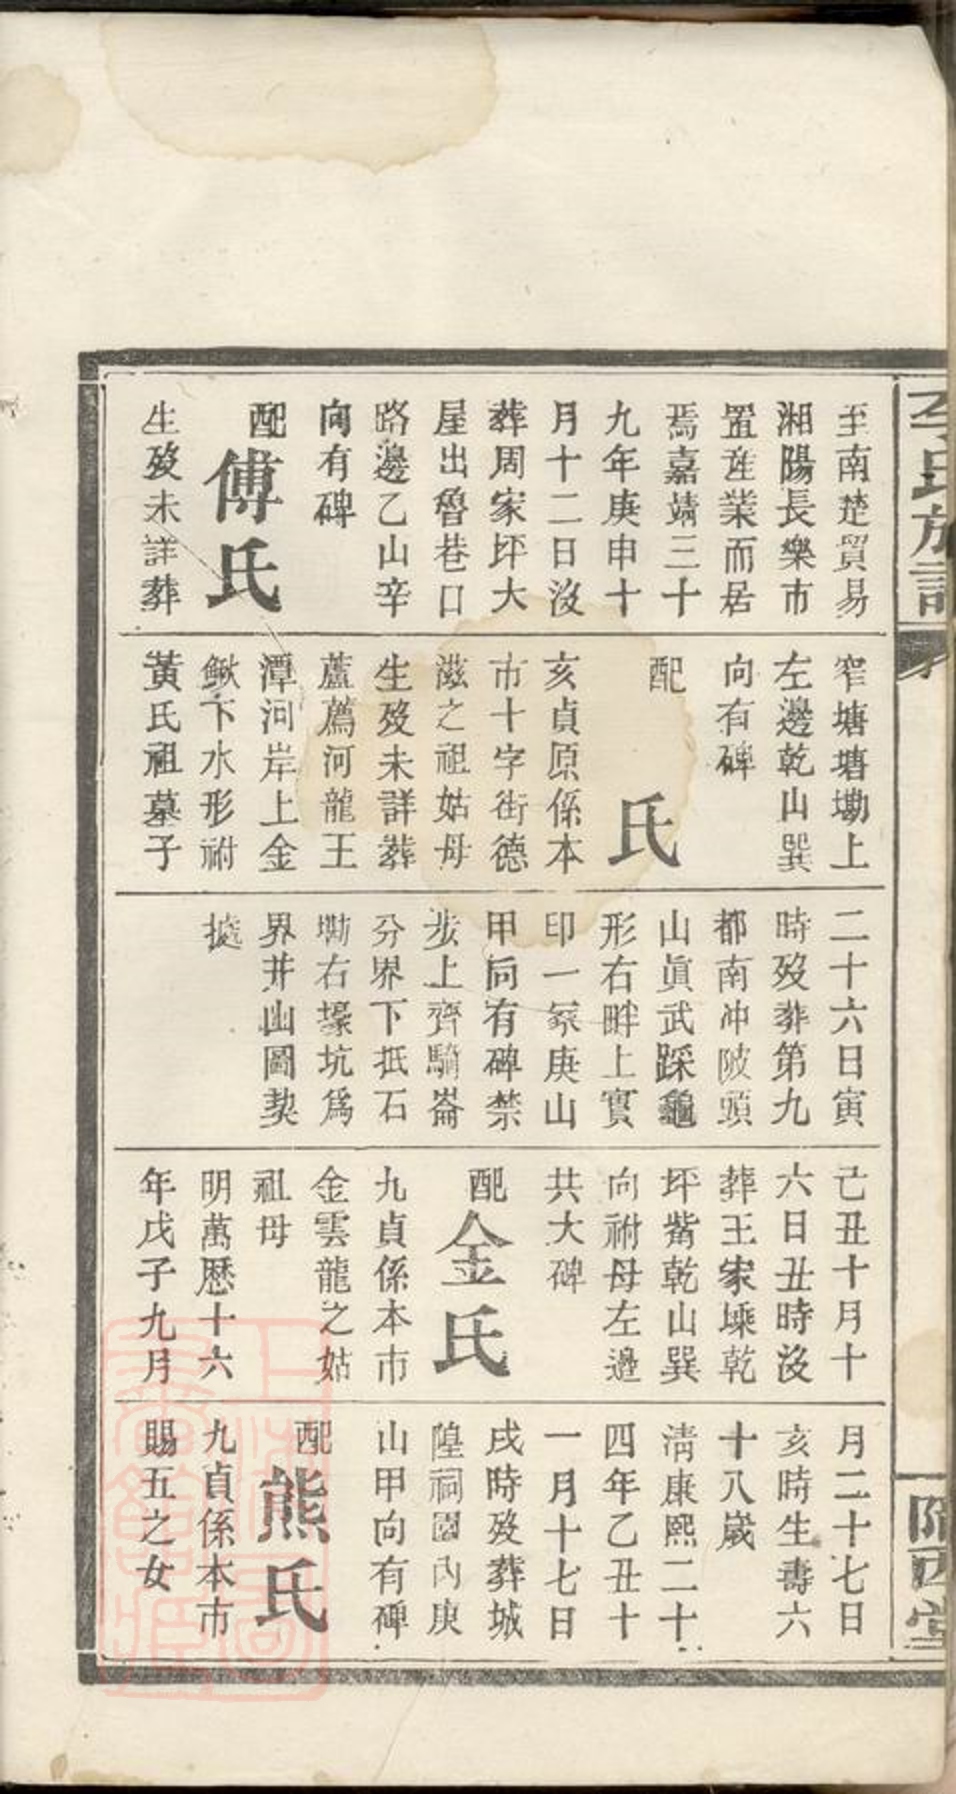 李氏族譜
隴西堂
至南楚貿易
湘陽長樂市
置產業而居
焉嘉靖三十
九年庚申十
月十二日沒
葬周家坪大
屋出魯巷口
路邊乙山辛
向有碑
配傅氏
生歿未詳葬
窄塘塘塘墈上
左邊乾山巽
向有碑
配　氏
亥貞原係本
市十字街德
滋之祖姑母
生歿未詳葬
蘆薦河龍王
潭河岸上金
鰍下水形祔
黃氏祖墓子
二十六日寅
時歿葬第九
都南冲陂頭
山眞武踩龜
形右畔上實
印一冢庚山
甲向有碑禁
步上齊騎崙
分界下抵石
墈右壕坑爲
界井山圖契
㨿
己丑十月十
六日丑時沒
葬王家塅乾
坪觜乾山巽
向祔母左邊
共大碑
配金氏
九貞係本市
金雲龍之姑
祖母
明萬歷十六
年戊子九月
月二十七日
亥時生壽六
十八歲
清康熙二十
四年乙丑十
一月十七日
戌時歿葬城
隍祠園內庚
山甲向有碑
配熊氏
九貞係本市
賜五之女